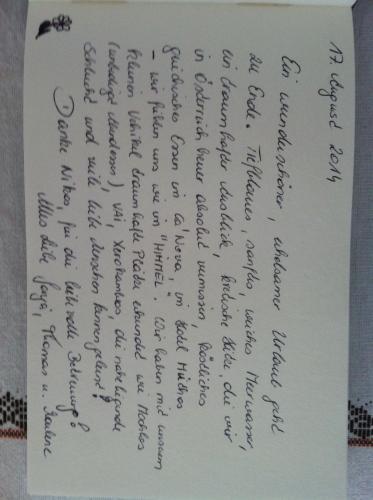 17. August 2014
Ein wunderschöner, erholsamer Urlaub geht
zu Ende. Tiefblaues, sanftes, weiches Meerwasser,
ein traumhafter Ausblick, kretische Hitze, die wir
in Österreich heuer absolut vermissen, köstliches
griechisches Essen im Ca'Nova, im Hotel Mythos
– wir fühlen uns wie im "HIMMEL". Wir haben mit unserem
kleinen Vehikel traumhafte Plätze erkundet wie Mochlos
(unbedingt Abendessen), VAI, Xerokambos die naheliegende
Schlucht und viele liebe Menschen kennengelernt!
Danke Nikos für die liebevolle Betreuung!
Alles Liebe Thomas u.